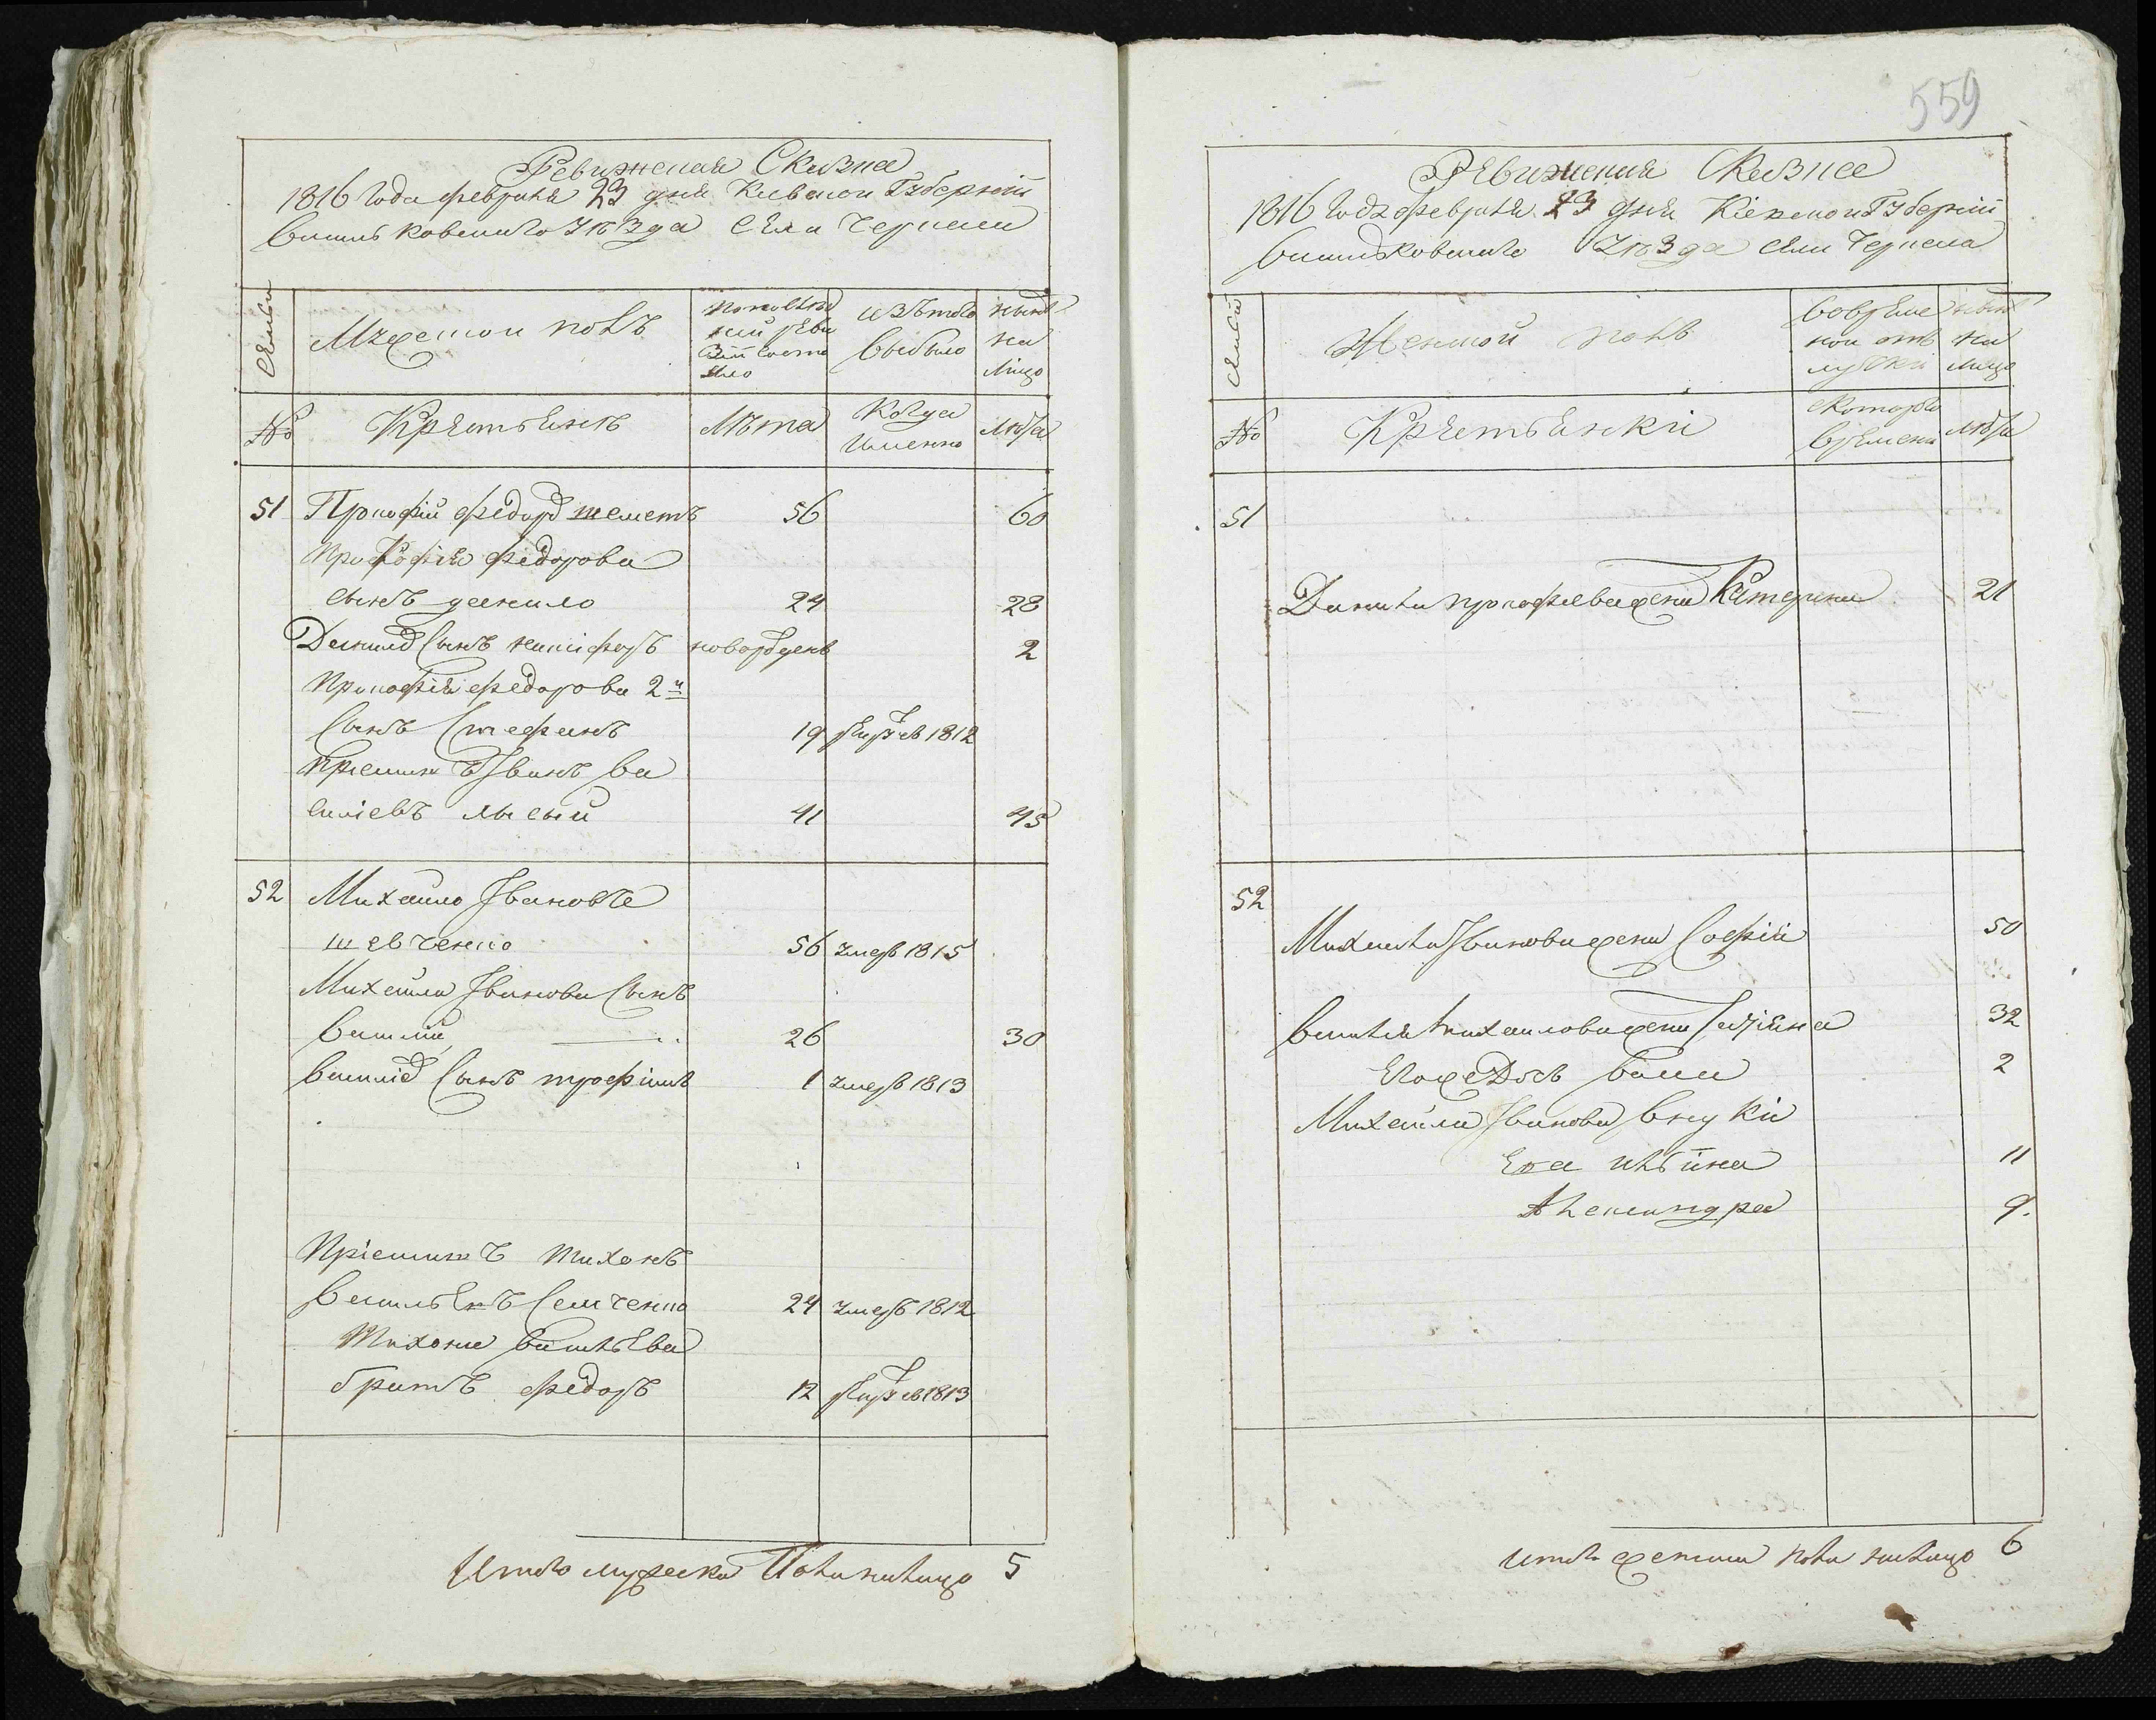 Ревижская Сказка
1816 Года февраля 23 дня Киевской Губерній
василковскаго Уѣзда Села Черкаси
Семьи
Мужеской полъ
По последней ревизій состояло
изътого выбыло
нынѣ на лицо
№
Крестьянъ
Лѣта
Когда именно
Лѣта
51 Прокофий федоров шеметъ 56 60
Прокофія федорова
сынъ данило 24 28
Данила Сынъ никифоръ новорожденъ 2
Прокофія федорова 2й
Сынъ Стефанъ 19 1812
приемышъ Іванъ ва
силіевъ лысый 41 45
52 Михайло Івановъ
шевченко 56 умеръ 1815
Михайла Іванова Сынъ
василій 26 30
василія Сынъ трофимъ 1 умеръ 1813
Пріемышъ тихонъ
васильевъ Семченко 24 умеръ 1812
Тихона васильева
братъ федоръ 12 1813
Итого мужеска Пола налицо 5
559
Ревижская Сказка
1816 Года февраля 23 дня Кіевской Губерній
василковскаго Уѣзда Села Черкаса
Семьи
Женской полъ
Вовременной отлучки
нынѣ на лицо
№
Крестьянки
скоторого времени
Лѣта
51
Данила прокофиева жена Катерина 21
52
Михаила Іванова жена Софія 50
василія михаилова жена 32
2
Михайла Іванова внуки
11
Александра 9.
итого женска пола налицо 6